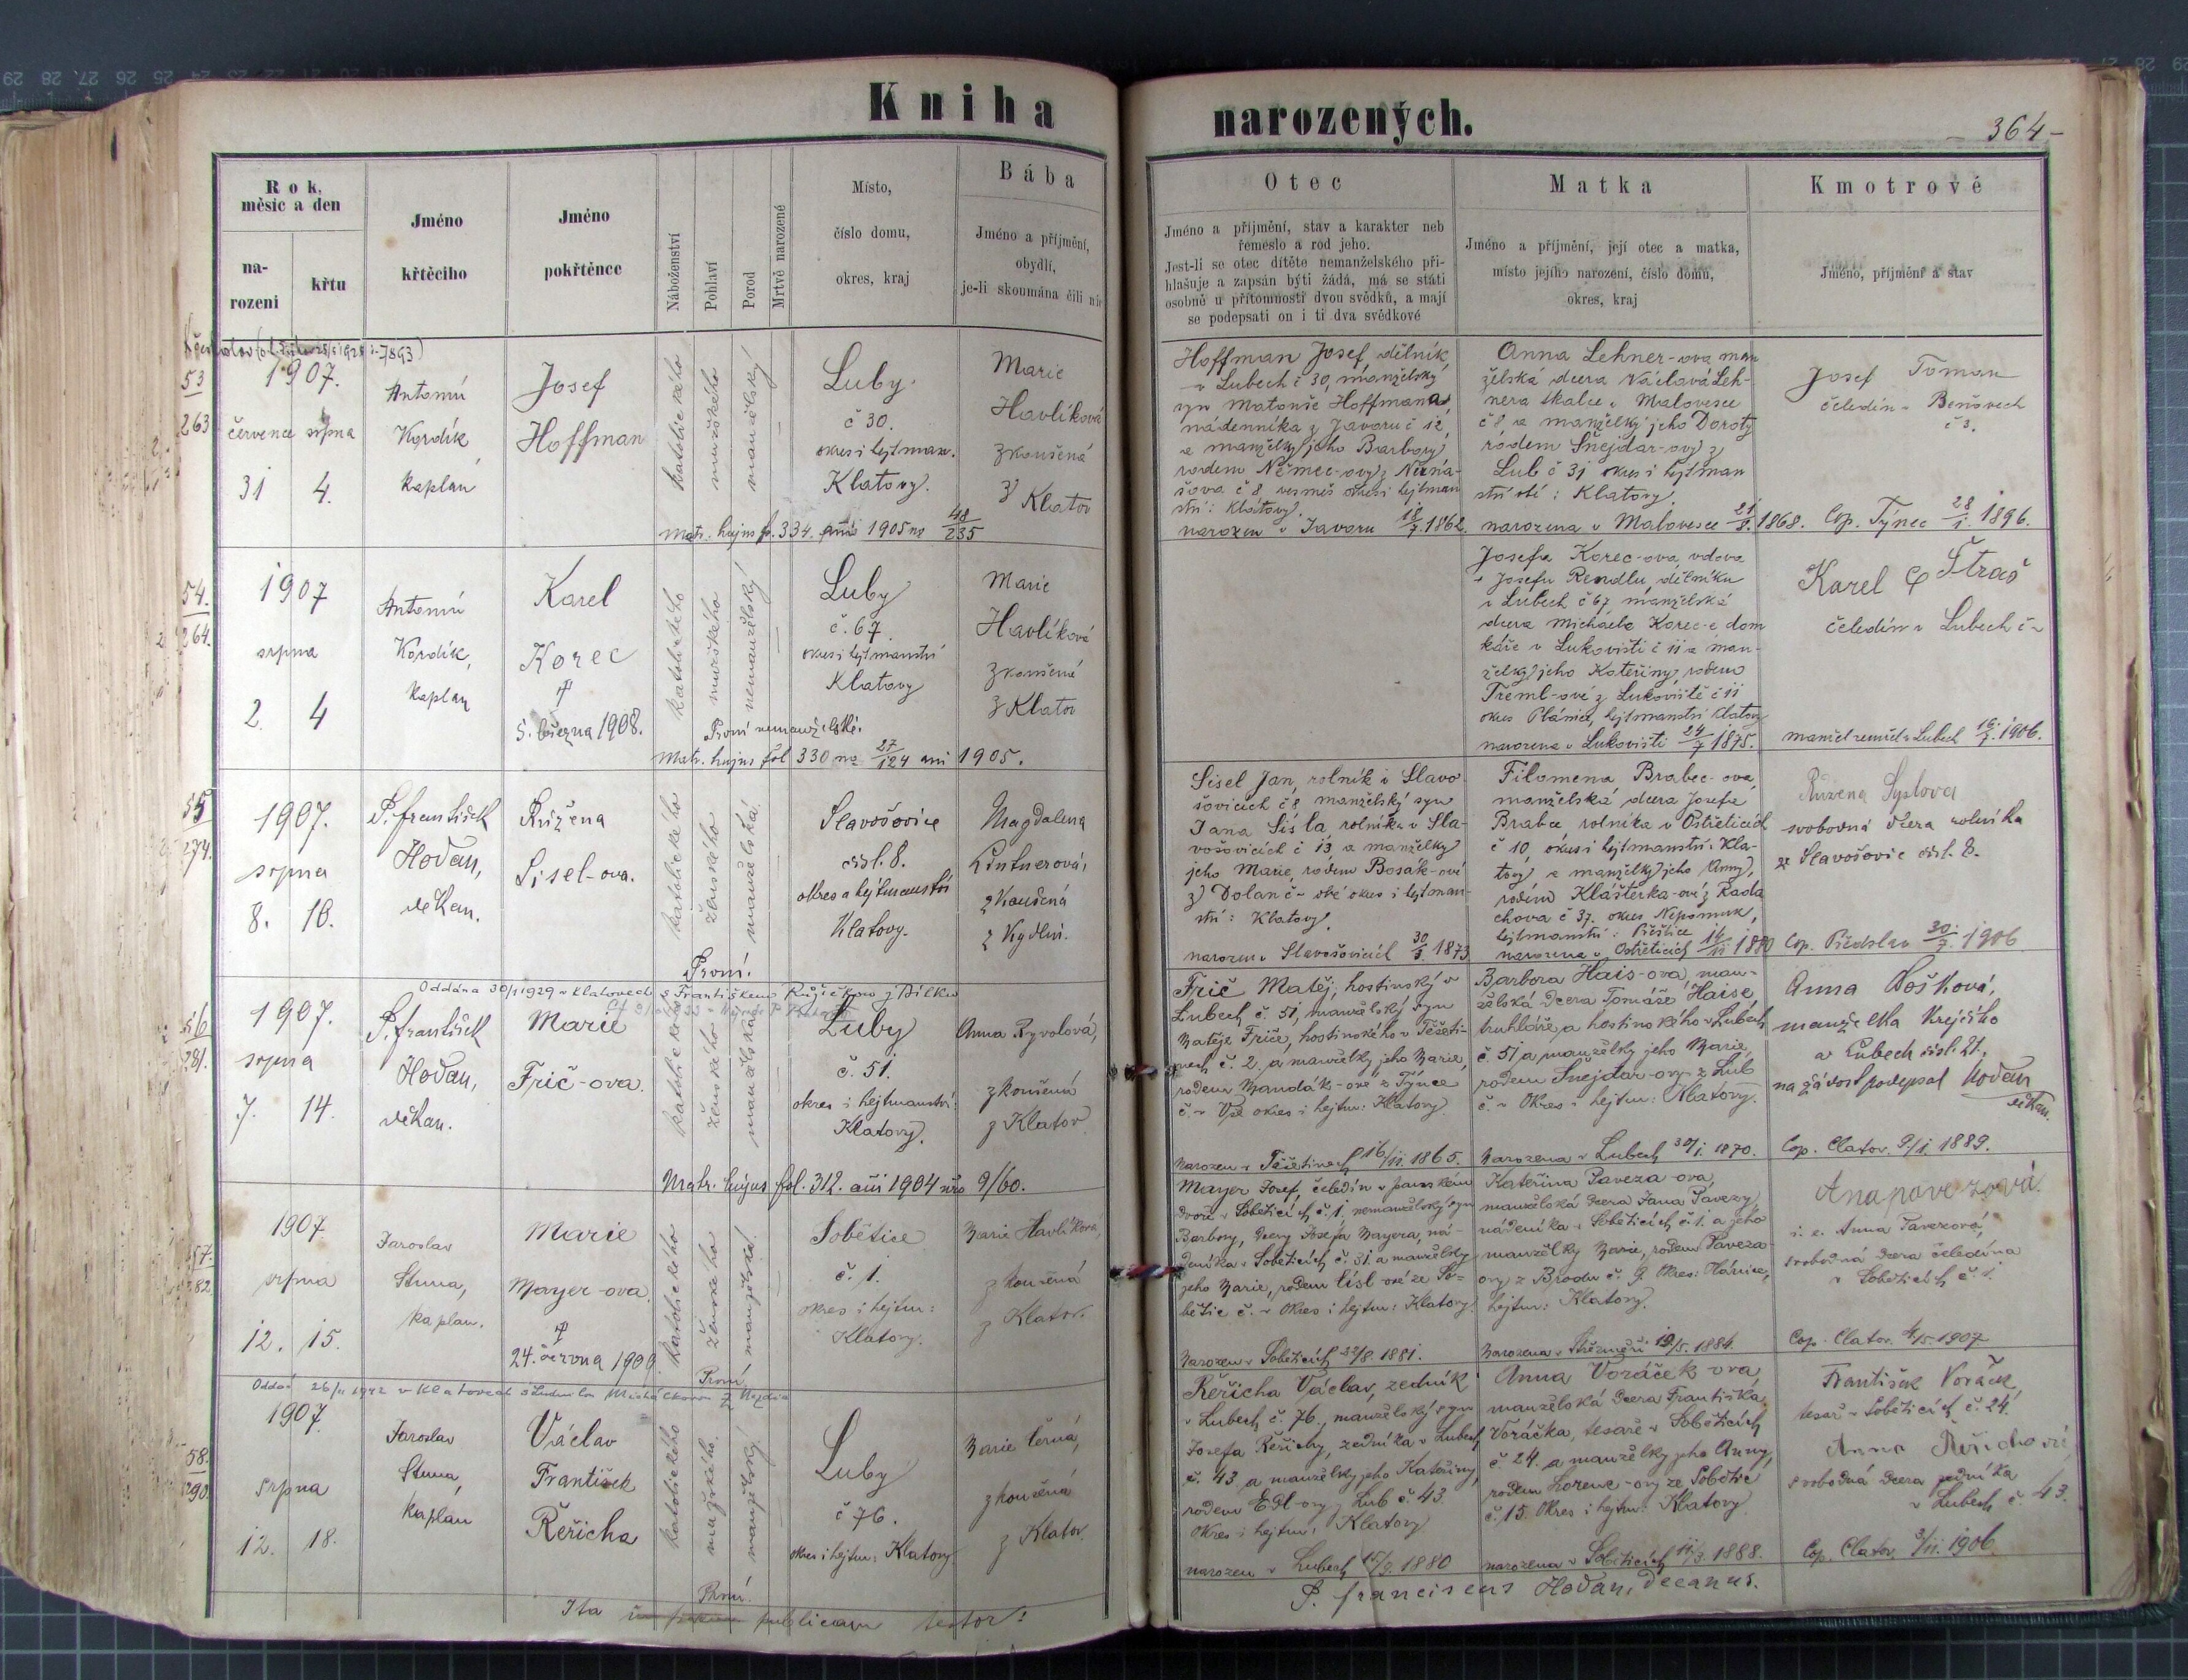 Kniha narozených.
364
Rok, měsíc a den
narození
křtu
Jméno křtěcího
Jméno pokřtěnce
Náboženství
Pohlaví
Porod
Mrtvě narozené
Místo,
číslo domu,
okres, kraj
Bába
Jméno a příjmení,
obydlí,
je-li skoumána čili
Otec
Jméno a příjmení, stav a karakter neb
řemeslo a rod jeho.
Jest-li se otec dítěte nemanželského při-
hlašuje a zapsán býti žádá, má se státi
osobně u přítomnosti dvou svědků, a mají
se podepsati on i ti dva svědkové
Matka
Jméno a příjmení, její otec a matka,
místo jejího narození, číslo domu,
okres, kraj
Kmotrové
Jméno, příjmení a stav
53
263
1907.
července srpna
31 4.
Antonín
Kordík
kaplan
Josef
Hoffman
katolického
mužského
manželský
Luby
č 30.
okres i hejtman.
Klatovy.
Marie
Havlíková
zkoušená
z Klatov
Matr. hujus f. 334. anni 1905 no 48/235
Hoffman Josef, dělník
v Lubech č 30, manželský
syn Matouše Hoffmana,
nádenníka z Javoru č 12
a manželky jeho Barbory
rodem Němec-ovy z
č 8 vesměs okres i hejtman
ství: Klatovy.
narozen v Javoru 18/7. 1862.
Anna Lehner-ova man
želská dcera Václava Leh-
nera v Malovesce
č 8 a manželky jeho Doroty
rodem Šnejdar-ovy z
Lub č 31 okres i hejtman
ství: Klatovy.
narozena v Malovesce 1868.
Josef Toman
čeledín v Benovech
č 3.
Cop. Týnec 28/1. 1896.
54.
264.
1907
srpna
2. 4
Antonín
Kordík,
kaplan
Karel
Korec
5. března 1908.
katolického
mužského
nemanželský
První nemanželské.
Luby
č. 67.
okres i hejtmanství
Klatovy
Marie
Havlíková
zkoušená
z Klatov
Matr. hujus fol 330 no 27/124 ani 1905.
Josefa Korec-ova, vdova
v Josefu Rendlu, dělníku
v Lubech č 67, manželská
dcera Michaela Korec-e dom
káře v Lukovišti č 11 a man-
želky jeho Kateřiny, rodem
Treml-ové z Lukoviště č 11
okres Plánice, hejtmanství Klatovy
narozena v Lukovišti 24/7 1875.
Karel Straš
čeledín v Lubech č -
manžel zemřel v Lubech 1906.
55
274.
1907.
srpna
8. 10.
P. František
Hodan,
děkan.
Růžena
Sisel-ova.
katolického
ženského
manželská.
První.
Slavošovice
čísl. 8.
okres a hejtmanství
Klatovy.
Magdalena
Lintnerová,
zkoušená
z Kydlin.
Sisel Jan, rolník v Slavo
šovicích č 8 manželský syn
Jana Sisla, rolníka v Sla-
vošovicích č 13 a manželky
jeho Marie, rodem Bosák-ové
z Dolan č - obé okres i hejtman-
ství: Klatovy.
narozen v Slavošovicích 1873
Filomena Brabec-ova,
manželská dcera Josefa
Brabce rolníka v Ostřeticích
č 10, okres i hejtmanství Kla-
tovy a manželky jeho Anny,
rodem Klášterka-ové z Rada
chova č 37. okres Nepomuk,
hejtmanství: Přeštice
narozena v Ostřeticích 1880
Růžena Syslova
svobodná dcera rolníka
ze Slavošovic čísl. 8.
Cop. Předslav 30/7. 1906
Oddána 30/1 1929 v Klatovech s Františkem Růžičkou z Bílku
56
281.
1907.
srpna
7. 14.
P. František
Hodan,
děkan.
Marie
Frič-ova.
katolického
ženského
manželská
Luby
č. 51.
okres i hejtmanství:
Klatovy.
Anna Pyvolová,
zkoušená
z Klatov
Matr. hujus fol. 312. anni 1904 nro 9/60.
Frič Matěj, hostinský v
Lubech č. 51, manželský syn
Matěje Friče, hostinského v Těšeti-
nech č. 2, a manželky jeho Marie,
rodem Mandák-ové z Týnce
č. - Vše okres i hejtm: Klatovy.
Narozen v Těšetinech 16/11. 1865.
Barbora Hais-ova, man-
želská dcera Tomáše Haise
truhláře a hostinského v Lubech
č. 51 a manželky jeho Marie
rodem Šnejdar-ovy z Lub
č. - Okres i hejtm: Klatovy.
Narozena v Lubech 30/1. 1870.
Anna Došková,
manželka krejčího
v Lubech čísl. 21.
na žádost podepsal Hodan
děkan.
Cop. Clatov. 9/1. 1889.
57.
282.
1907.
srpna
12. 15.
Jaroslav
Stuna,
kaplan.
Marie
Mayer-ova.
24. června 1909
katolického
ženského
manželská
První
Sobětice
č. 1.
okres i hejtm:
Klatovy.
Marie Havlíková,
zkoušená
z Klatov.
Mayer Josef, čeledín v panském
dvoře v Soběticích č. 1, nemanželský syn
Barbory, dcery Josefa Mayera, ná-
deníka v Soběticích č. 31 a manželky
jeho Marie, rodem Císl-ové ze So-
bětic č. - Okres i hejtm: Klatovy.
Narozen v Soběticích 1881.
Kateřina Paveza-ova,
manželská dcera Jana Pavezy,
nádeníka v Soběticích č. 1. a jeho
manželky Marie, rodem Paveza-
ovy z Brodu č. 9. Okres: Plánice,
hejtm: Klatovy.
Narozena v 1884.
Anapavezová.
i. e. Anna Pavezová,
svobodná dcera čeledína
v Soběticích č. 1.
Cop. Clatov. 1907
Oddán 26/11 1942 v Klatovech s Ludmilou Macháčkovou z
58.
290.
1907.
srpna
12. 18.
Jaroslav
Stuna,
kaplan
Václav
František
Řeřicha
katolického
mužského.
manželský.
První.
Luby
č 76.
okres i hejtm: Klatovy.
Marie Černá,
zkoušená
z Klatov
Řeřicha Václav, zedník
v Lubech č. 76., manželský syn
Josefa Řeřichy, zedníka v Lubech
č. 43 a manželky jeho Kateřiny,
rodem Edl-ovy z Lub č. 43.
Okres i hejtm: Klatovy
narozen v Lubech 15/9. 1880
Anna Voráček-ova,
manželská dcera Františka
Voráčka, tesaře v Soběticích
č. 24. a manželky jeho Anny,
rodem Lorenc-ovy ze Sobětic
č. 15. Okres i hejtm: Klatovy.
narozena v Soběticích 11/3. 1888.
František Voráček
tesař v Soběticích č. 24.
Anna Řeřichová,
svobodná dcera zedníka
v Lubech č. 43.
Cop. Clatov. 3/11. 1906.
Ita publicam testor:
P. Franciscus Hodan, decanus.